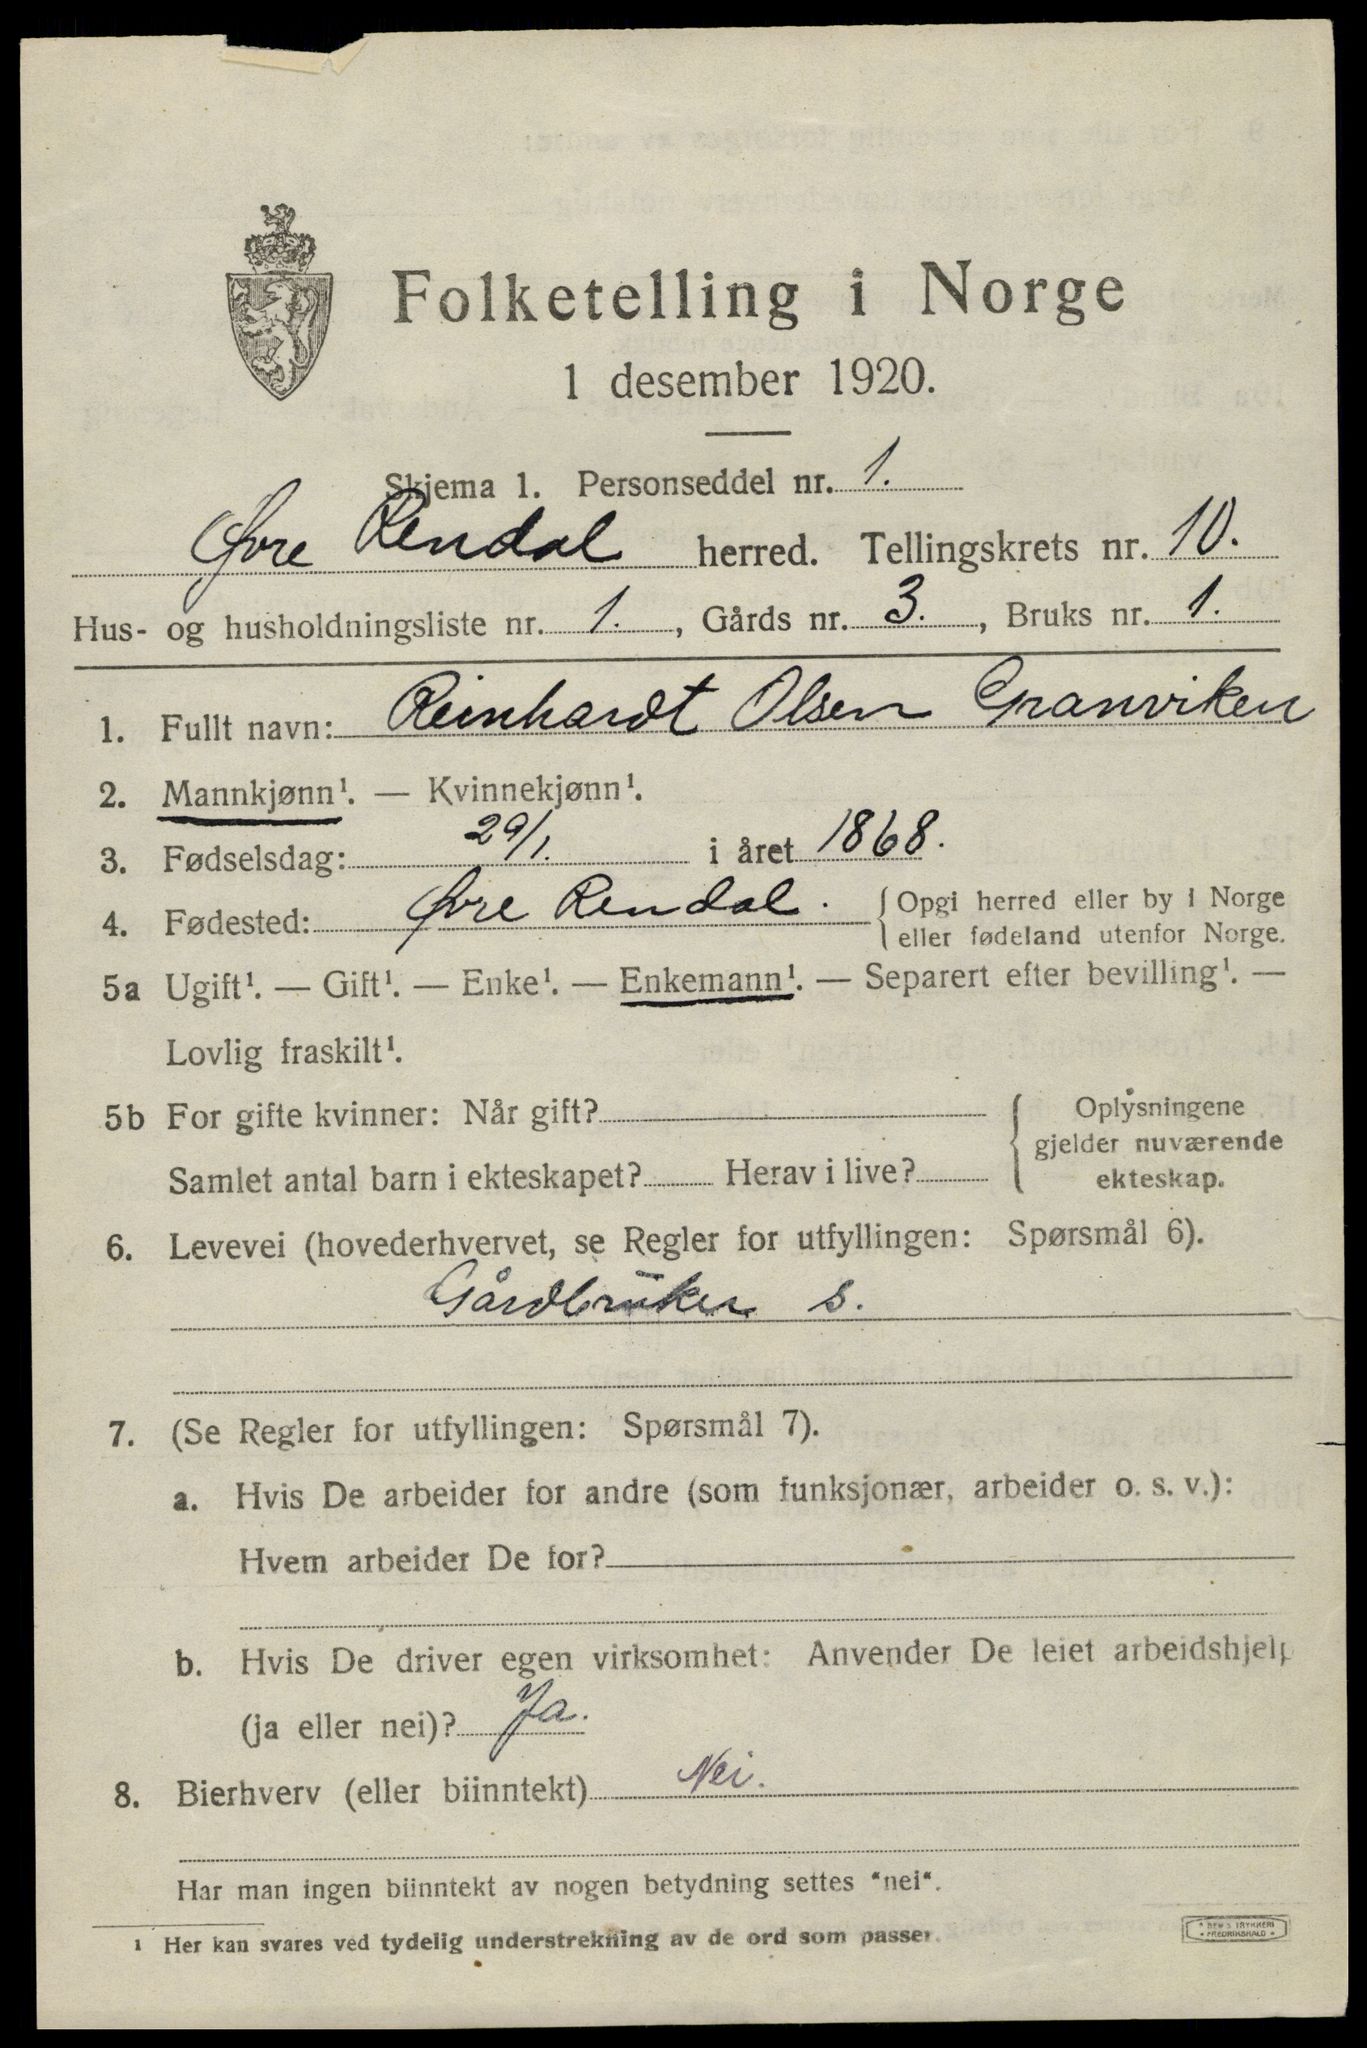 Folketelling i Norge
1 desember 1920.
Skjema 1. Personseddel nr. 1.
Øvre Rendal herred. Tellingskrets nr. 10.
Hus- og husholdningsliste nr. 1., Gårds nr. 3., Bruks nr. 1.
1. Fullt navn: Reinhardt Olsen Granviken
2. Mannkjønn¹. — Kvinnekjønn¹.
3. Fødselsdag: 29/1. i året 1868.
4. Fødested: Øvre Rendal. {Opgi herred eller by i Norge
eller fødeland utenfor Norge.
5a Ugift¹. — Gift¹. — Enke¹. — Enkemann¹. — Separert efter bevilling¹. —
Lovlig fraskilt¹.
5b For gifte kvinner: Når gift? { Oplysningene
gjelder nuværende
Samlet antal barn i ekteskapet? Herav i live? ekteskap.
6. Levevei (hovederhvervet, se Regler for utfyllingen: Spørsmål 6).
Gårdbruker s.
7. (Se Regler for utfyllingen: Spørsmål 7).
a. Hvis De arbeider for andre (som funksjonær, arbeider o. s. v.):
Hvem arbeider De for?
b. Hvis De driver egen virksomhet: Anvender De leiet arbeidshjelp
(ja eller nei)? Ja.
8. Bierhverv (eller biinntekt) Nei.
Har man ingen biinntekt av nogen betydning settes "nei".
¹ Her kan svares ved tydelig understrekning av de ord som passer.
TRYKKERI
FREDRIKSHALD